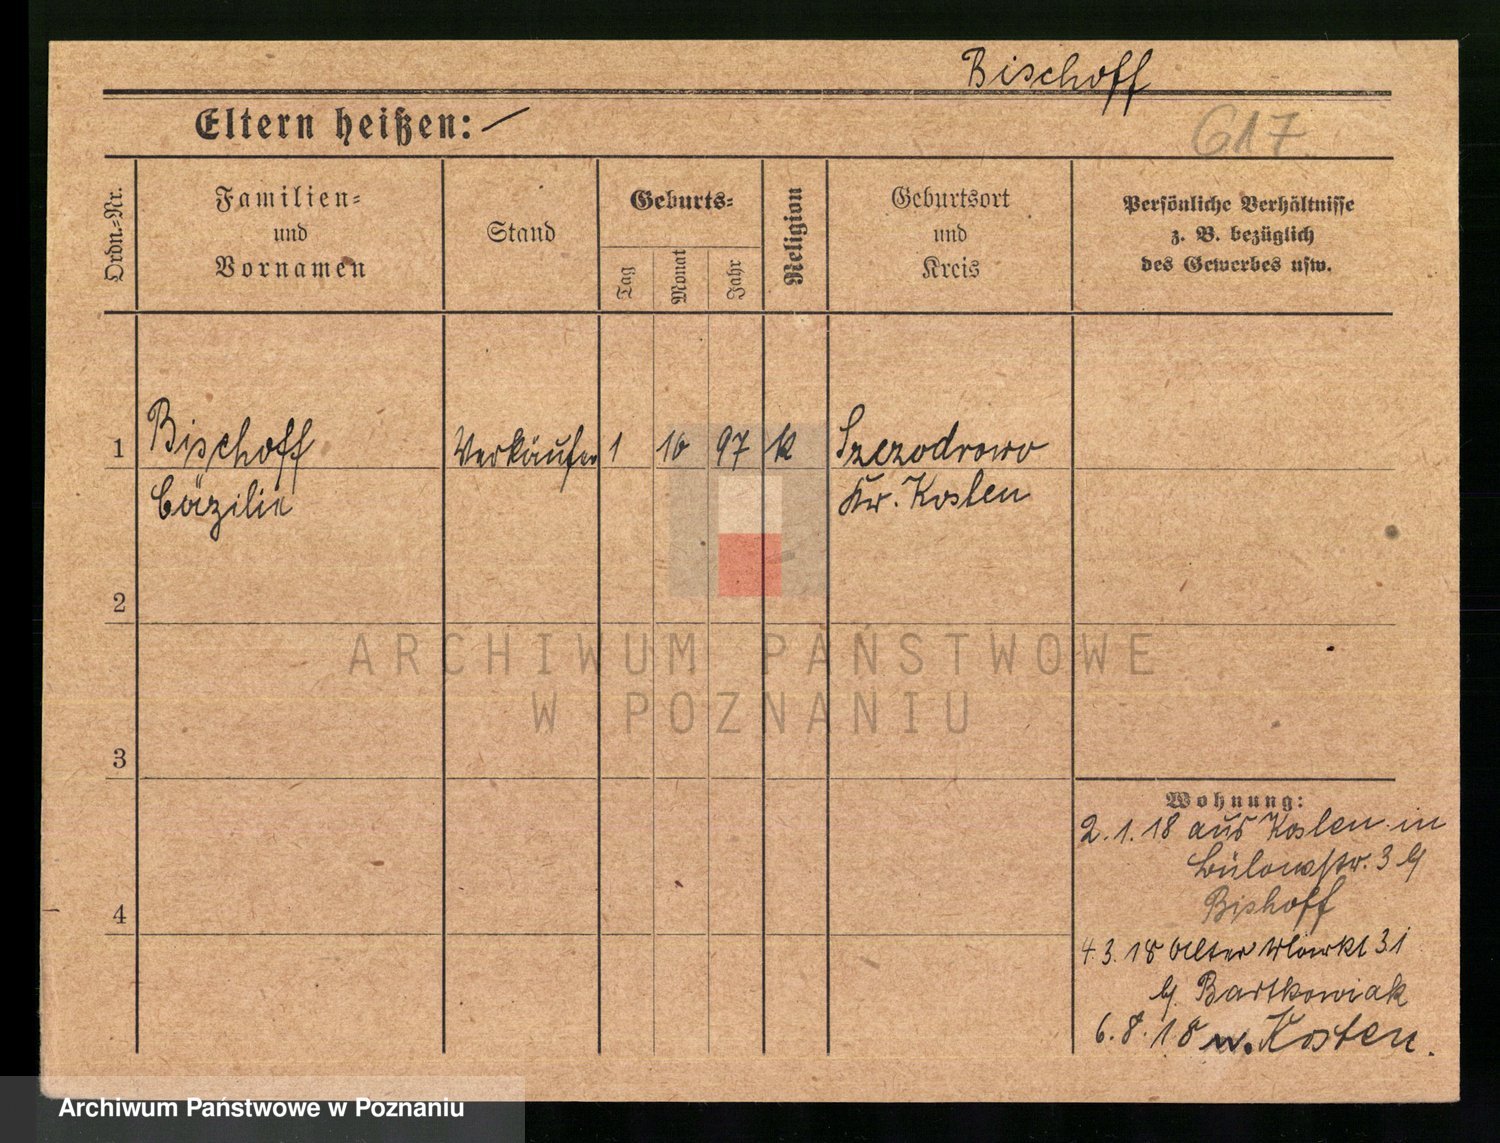 Bischoff
Eltern heißen: —
617
Ordn.-Nr.
Familien-
und
Vornamen
Stand
Geburts-
Tag
Monat
Jahr
Religion
Geburtsort
und
Kreis
Persönliche Verhältnisse
z. B. bezüglich
des Gewerbes usw.
1 Bischoff Verkäuferin 1 10 97 k Szczodrowo
Cäzilie Kr. Kosten
2
3
4
Wohnung:
2.1.18 aus Kosten in
Bülowstr. 3 b/
Bishoff
4.3.18 Alter Markt 31
b/ Bartkowiak
6.8.18 n. Kosten.
ARCHIWUM PAŃSTWOWE
W POZNANIU
Archiwum Państwowe w Poznaniu